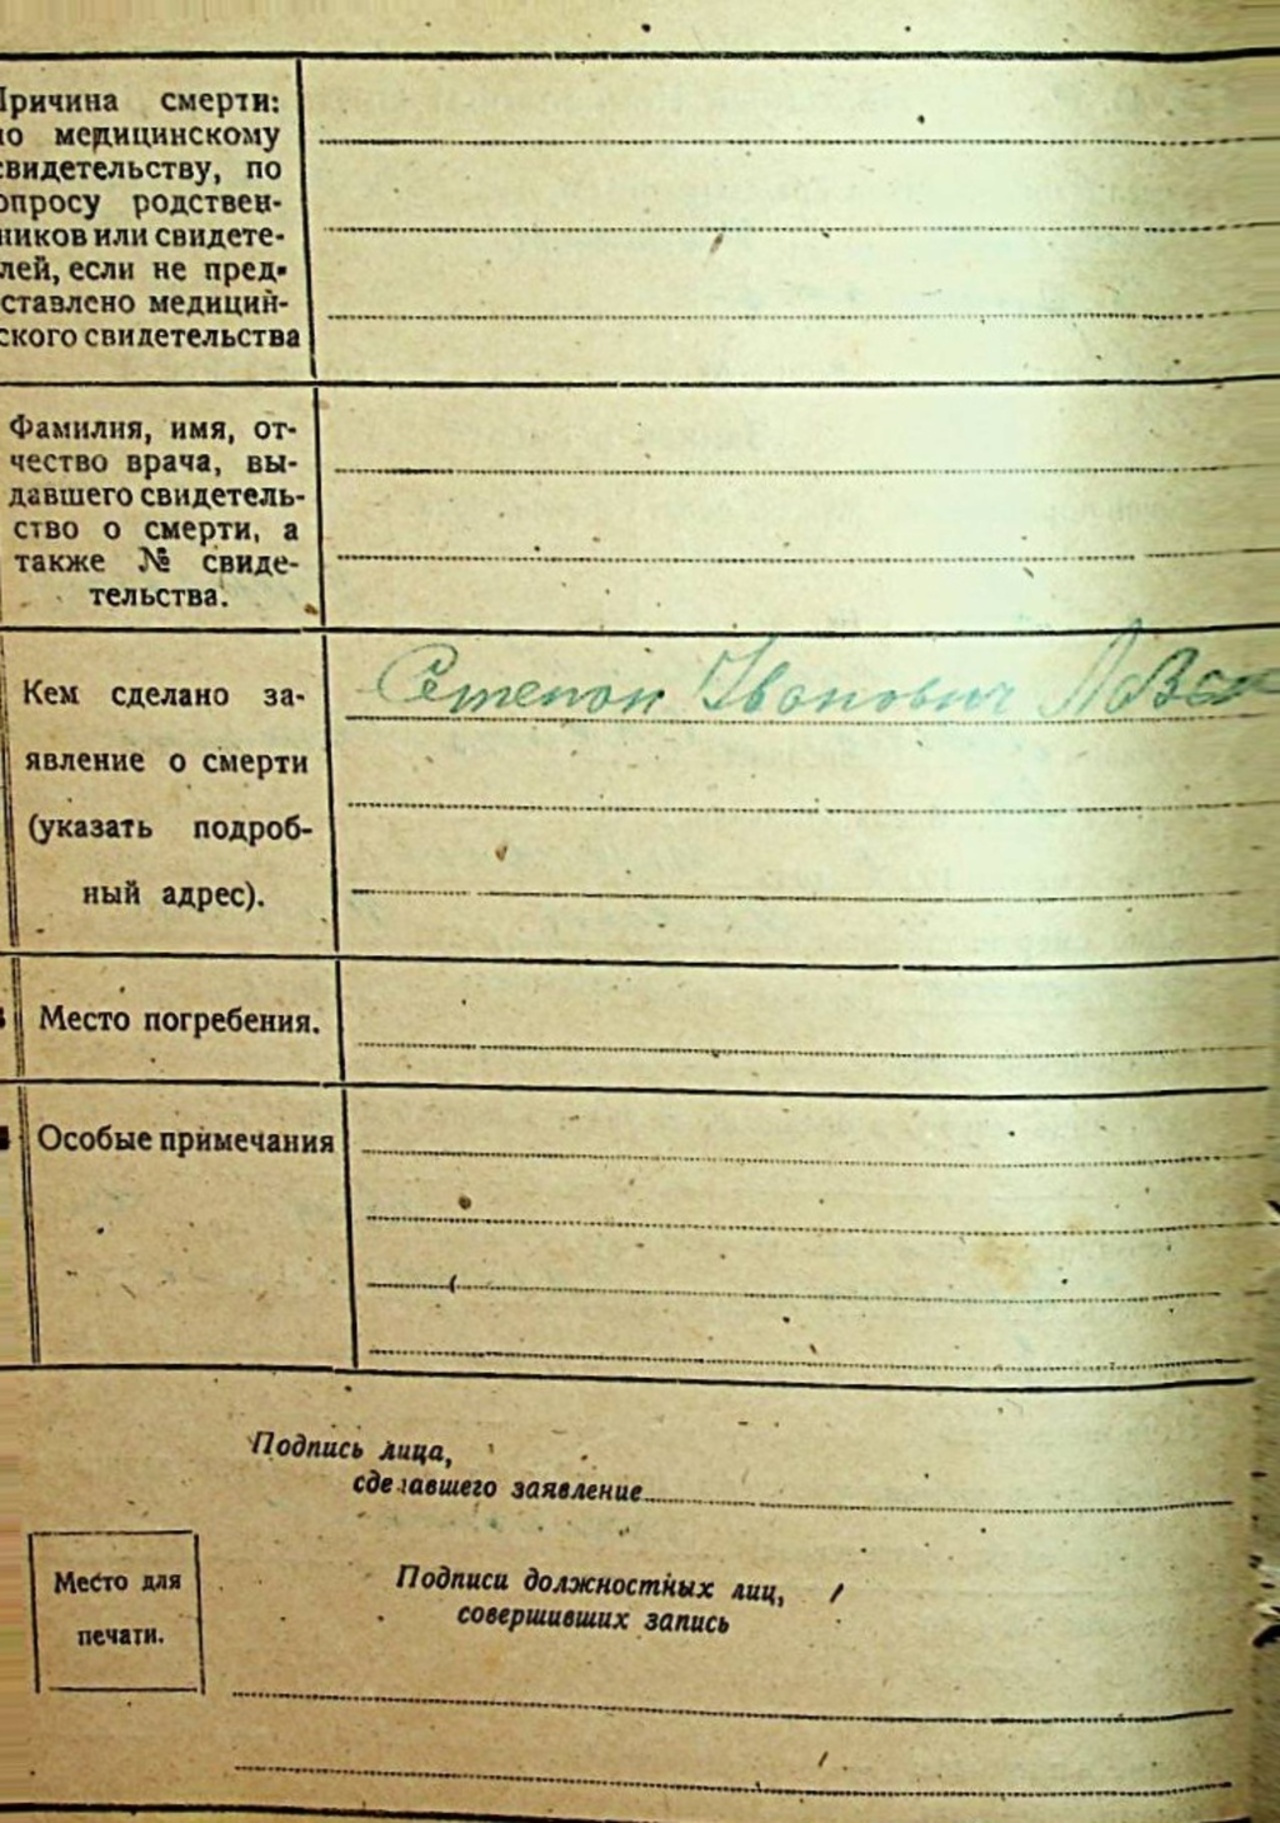 Причина смерти:
по медицинскому
свидетельству, по
опросу родствен-
ников или свидете-
лей, если не пред-
ставлено медицин-
ского свидетельства
Фамилия, имя, от-
чество врача, вы-
давшего свидетель-
ство о смерти, а
также № свиде-
тельства.
Кем сделано за-
явление о смерти
(указать подроб-
ный адрес).
Степон Іванович
Место погребения.
Особые примечания
Подпись лица,
сделавшего заявление
Место для
печати.
Подписи должностных лиц,
совершивших запись